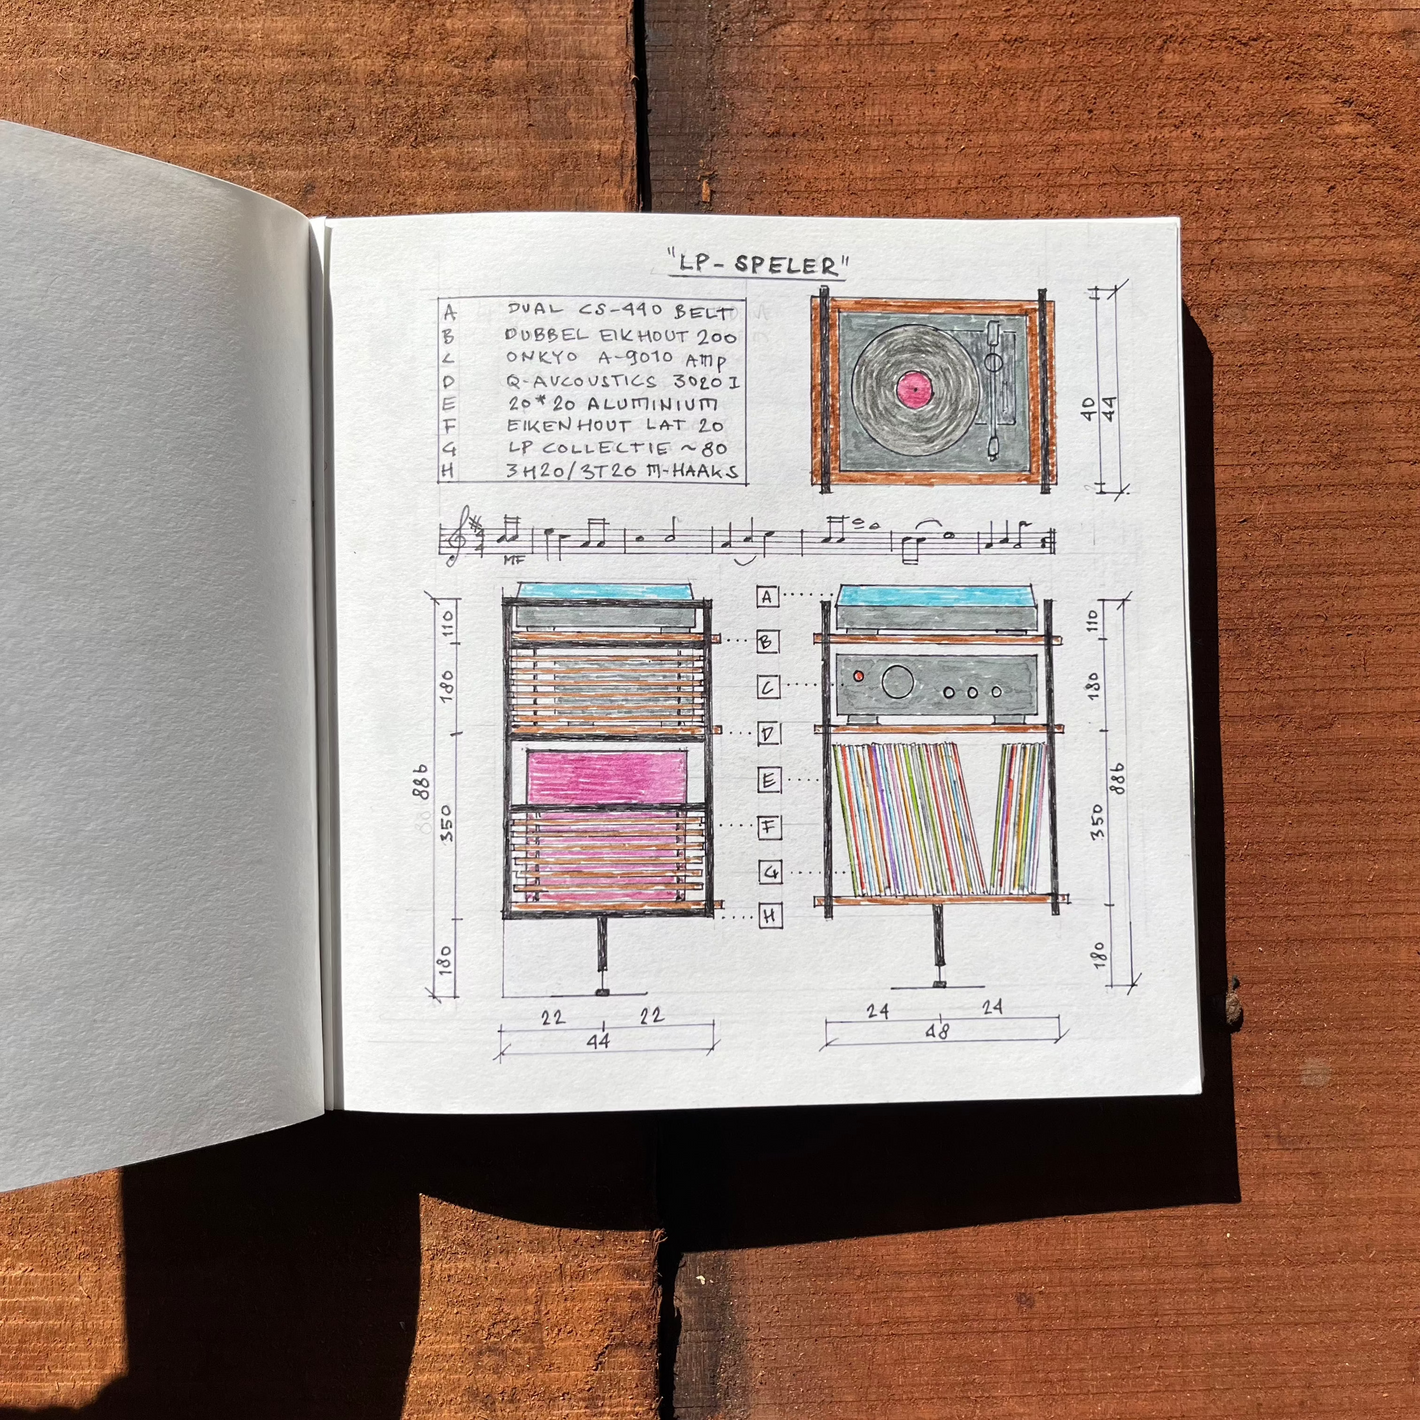 "LP-SPELER"
A DUAL CS-440 BELT
B DUBBEL EIKHOUT 200
C ONKYO A-9010 AMP
D Q-AUCOUSTICS 3020I
E 20*20 ALUMINIUM
F EIKENHOUT LAT 20
G LP COLLECTIE ~80
H 3H20/3T20 M-HAAKS
40
44
MF
A
B
C
D
E
F
G
H
110
180
350
180
886
110
180
350
180
886
22 22
44
24 24
48